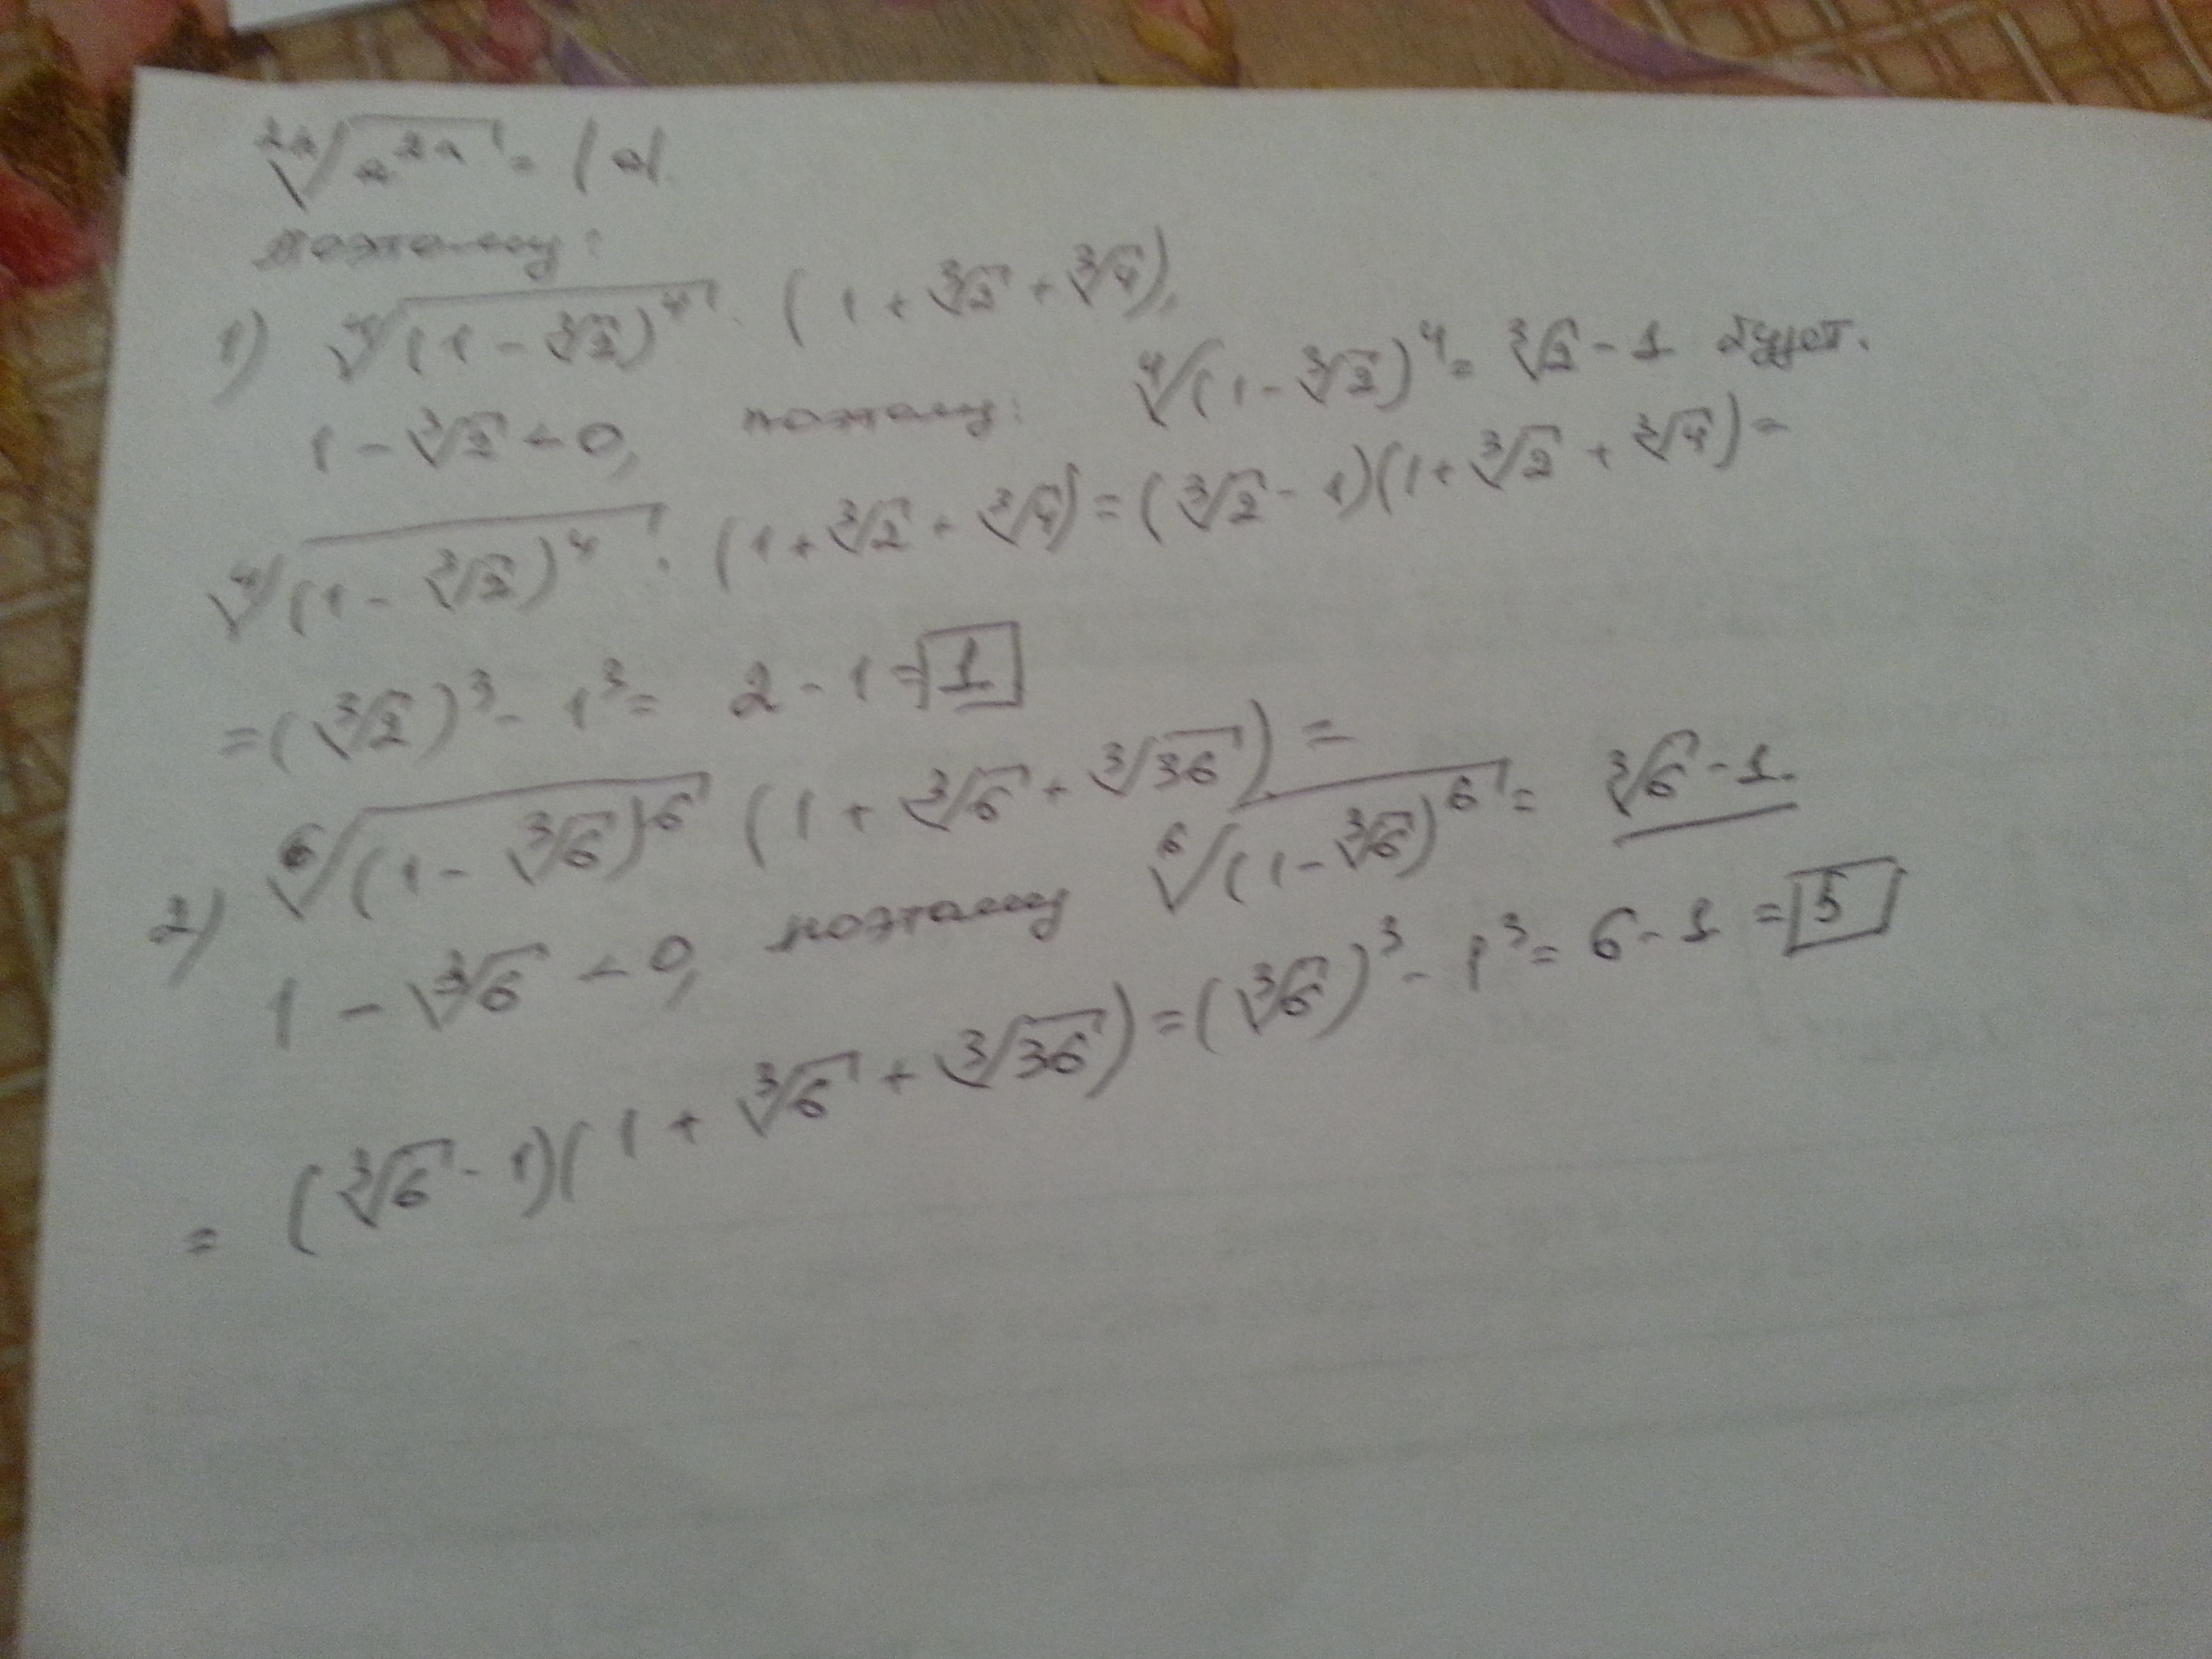 ²ⁿ√(a²ⁿ) = |a|.
поэтому:
1) ⁴√((1 - ³√2)⁴) · (1 + ³√2 + ³√4),
1 - ³√2 < 0, поэтому: ⁴√(1 - ³√2)⁴ = ³√2 - 1 будет.
⁴√((1 - ³√2)⁴) · (1 + ³√2 + ³√4) = (³√2 - 1)(1 + ³√2 + ³√4) =
= (³√2)³ - 1³ = 2 - 1 = 1
2) ⁶√((1 - ³√6)⁶) (1 + ³√6 + ³√36) =
1 - ³√6 < 0, поэтому ⁶√((1 - ³√6)⁶) = ³√6 - 1.
= (³√6 - 1)(1 + ³√6 + ³√36) = (³√6)³ - 1³ = 6 - 1 = 5